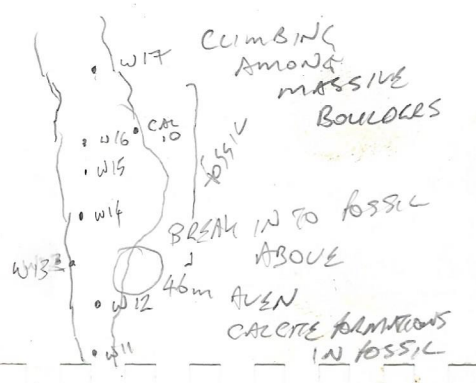 CLIMBING
AMONG
MASSIVE
BOULDERS
W17
W16
CAL
10
W15
FOSSIL
W14
BREAK IN TO FOSSIL
ABOVE
W13
46m AVEN
W12
CALCITE FORMATIONS
IN FOSSIL
W11